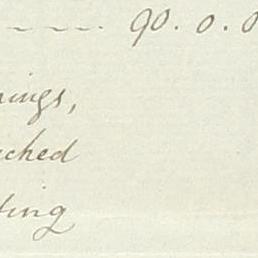 90. 0. 0
nings,
ched
ting